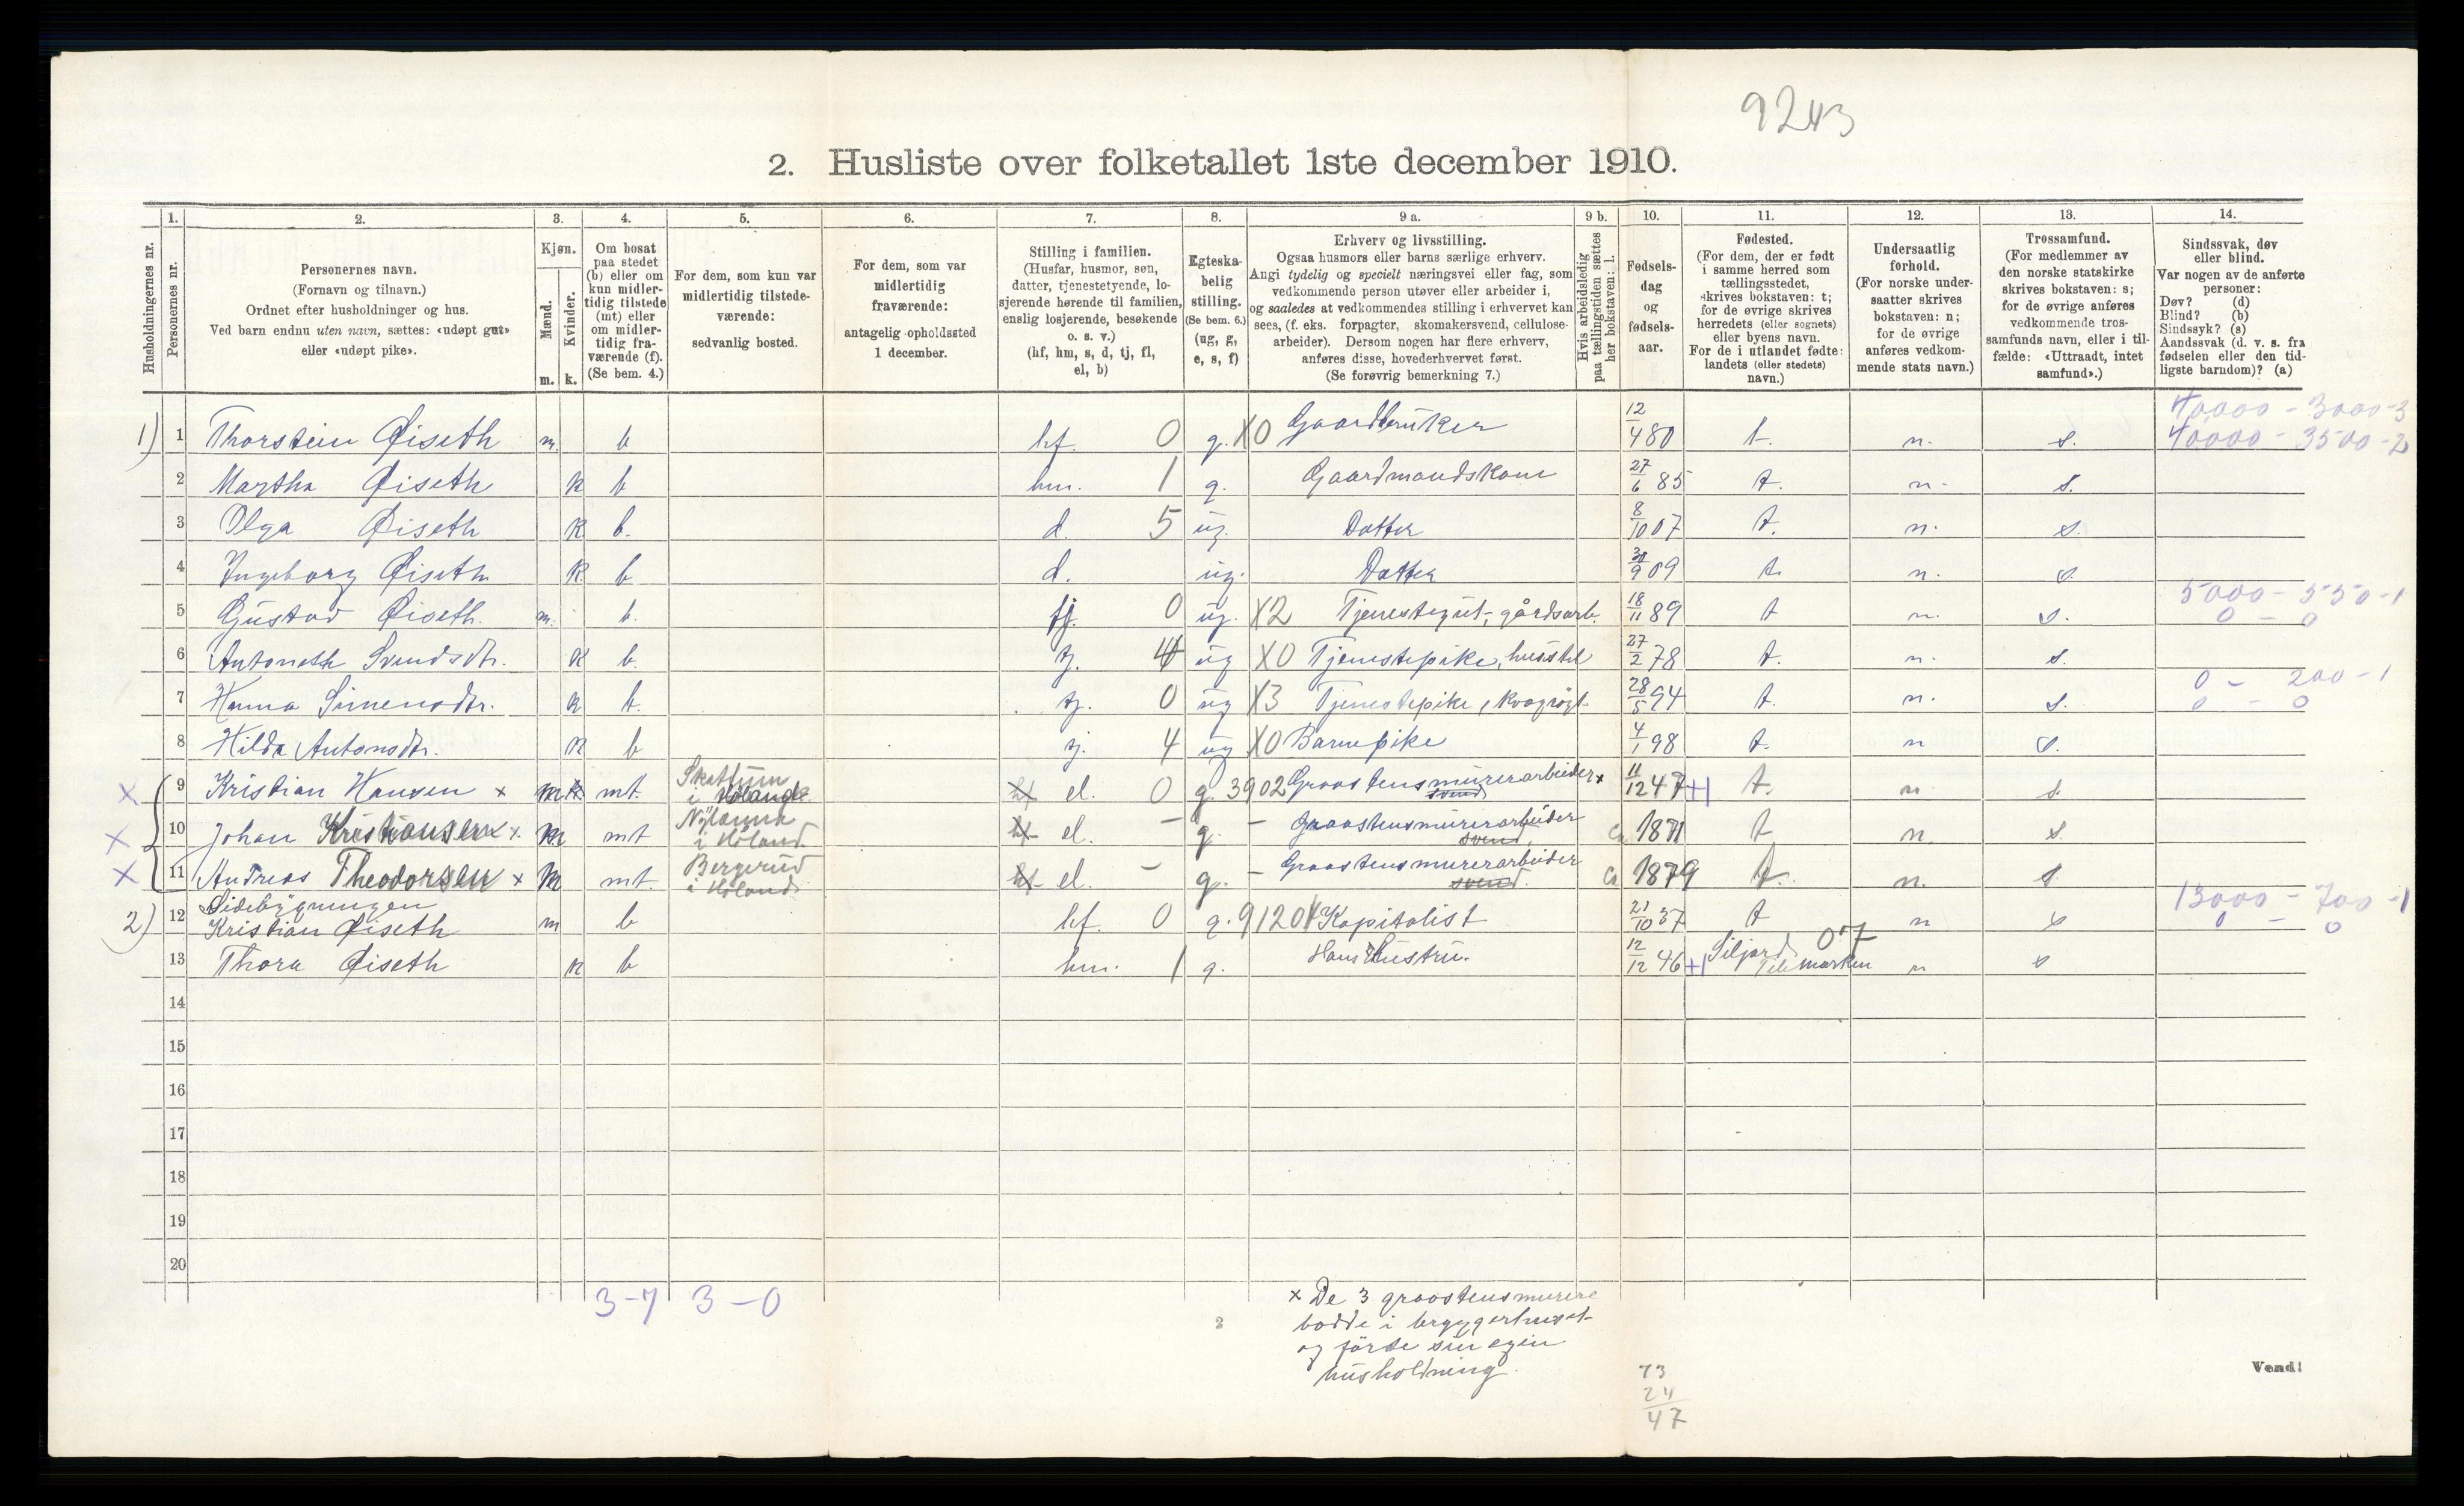 9243
2. Husliste over folketallet 1ste december 1910.
1. 2. 3. 4. 5. 6. 7. 8. 9 a. 9 b. 10. 11. 12. 13. 14.
Husholdningernes nr.
Personernes nr.
Personernes navn.
(Fornavn og tilnavn.)
Ordnet efter husholdninger og hus.
Ved barn endnu uten navn, sættes: «udøpt gut»
eller «udøpt pike».
Kjøn.
Mænd.
Kvinder.
m. k.
Om bosat
paa stedet
(b) eller om
kun midler-
tidig tilstede
(mt) eller
om midler-
tidig fra-
værende (f).
(Se bem. 4.)
For dem, som kun var
midlertidig tilstede-
værende:
sedvanlig bosted.
For dem, som var
midlertidig
fraværende:
antagelig opholdssted
1 december.
Stilling i familien.
(Husfar, husmor, søn,
datter, tjenestetyende, lo-
sjerende hørende til familien,
enslig losjerende, besøkende
o. s. v.)
(hf, hm, s, d, tj, fl,
el, b)
Egteska-
belig
stilling.
(Se bem. 6.)
(ug, g,
e, s, f)
Erhverv og livsstilling.
Ogsaa husmors eller barns særlige erhverv.
Angi tydelig og specielt næringsvei eller fag, som
vedkommende person utøver eller arbeider i,
og saaledes at vedkommendes stilling i erhvervet kan
sees, (f. eks. forpagter, skomakersvend, cellulose-
arbeider). Dersom nogen har flere erhverv,
anføres disse, hovederhvervet først.
(Se forøvrig bemerkning 7.)
Hvis arbeidsledig
paa tællingstiden sættes
her bokstaven: l.
Fødsels-
dag
og
fødsels-
aar.
Fødested.
(For dem, der er født
i samme herred som
tællingsstedet,
skrives bokstaven: t;
for de øvrige skrives
herredets (eller sognets)
eller byens navn.
For de i utlandet fødte:
landets (eller stedets)
navn.)
Undersaatlig
forhold.
(For norske under-
saatter skrives
bokstaven: n;
for de øvrige
anføres vedkom-
mende stats navn.)
Trossamfund.
(For medlemmer av
den norske statskirke
skrives bokstaven: s;
for de øvrige anføres
vedkommende tros-
samfunds navn, eller i til-
fælde: «Uttraadt, intet
samfund».)
Sindssvak, døv
eller blind.
Var nogen av de anførte
personer:
Døv? (d)
Blind? (b)
Sindssyk? (s)
Aandssvak (d. v. s. fra
fødselen eller den tid-
ligste barndom)? (a)
40000 - 3000-3
1) 1 Thorstein Øiseth m. b hf. 0 g. X0 Gaardbruker 12/4 80 t. n. s. 40000 - 3500-2
2 Martha Øiseth k b hm. 1 g. Gaardmandskone 27/6 85 t. n. s.
3 Olga Øiseth k b. d. 5 ug. Datter 8/10 07 t. n. s.
4 Ingeborg Øiseth k b d. ug. Datter 30/9 09 t. n. s.
5000 - 550-1
5 Gustav Øiseth. m. b. tj. 0 ug. X2 Tjenestegut, gårdsarb. 18/11 89 t n. s. 0 - 0
6 Antonette Svendsdtr. k b. tj. 4 ug X0 Tjenestepike, husstel 27/2 78 t. n. s.
0 - 200-1
7 Hanna Simensdtr. k b. tj. 0 ug X3 Tjenestepike, kvægrögt 28/5 94 t. n. s. 0 - 0
8 Hilda Antonsdtr. k b tj. 4 ug X0 Barnepike 4/1 98 t. n s.
9 Kristian Hansen x m mt. Skattum i Höland el. 0 g. 3902 Graastensmurerarbeider x svend 11/12 47 +1 t. n s.
10 Johan Kristiansen x m mt i Höland el. - g. - Graastensmurerarbeider svend ca 1871 t n. s.
11 Andreas Theodorsen x m mt. Bergerud i Höland el. - g. - Graastensmurerarbeider svend. ca 1879 t. n. s
Sidebygningen
13000 - 700-1
2) 12 Kristian Øiseth m b hf. 0 g. 9120 Kapitalist 21/10 37 t n s 0 - 0
13 Thora Øiseth k b hm. 1 g. Hans Hustru. 12/12 46 +1 Siljord Telemarken 07 n s
14
15
16
17
18
19
20
3-7 3-0
x De 3 graastensmurere
bodde i bryggerhuset
og förte sin egen
husholdning.
2
73
24
47
Vend!